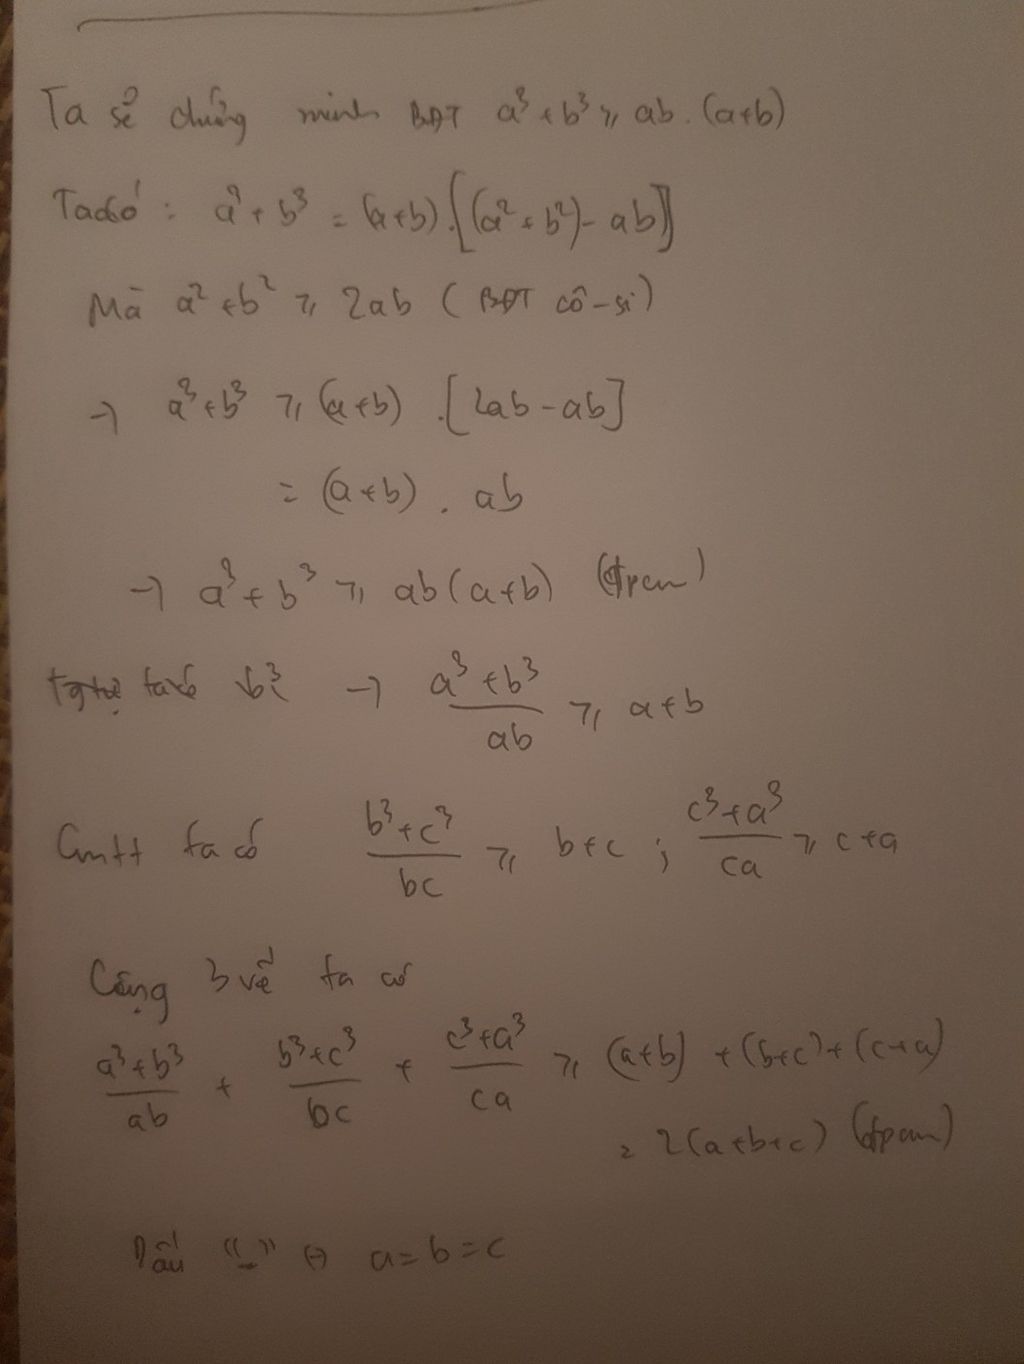 Ta sẽ chứng minh BĐT a³ + b³ ≥ ab . (a+b)
Ta có : a³ + b³ = (a+b) . [(a² + b²) - ab]
Mà a² + b² ≥ 2ab ( BĐT cô-si )
→ a³ + b³ ≥ (a+b) . [2ab - ab]
= (a+b) . ab
→ a³ + b³ ≥ ab(a+b) (đpcm)
ta có → (a³ + b³)/ab ≥ a+b
Cmtt ta có (b³ + c³)/bc ≥ b+c ; (c³ + a³)/ca ≥ c+a
Cộng 3 vế ta có
(a³ + b³)/ab + (b³ + c³)/bc + (c³ + a³)/ca ≥ (a+b) + (b+c) + (c+a)
= 2(a+b+c) (đpcm)
Dấu "=" ⇔ a=b=c